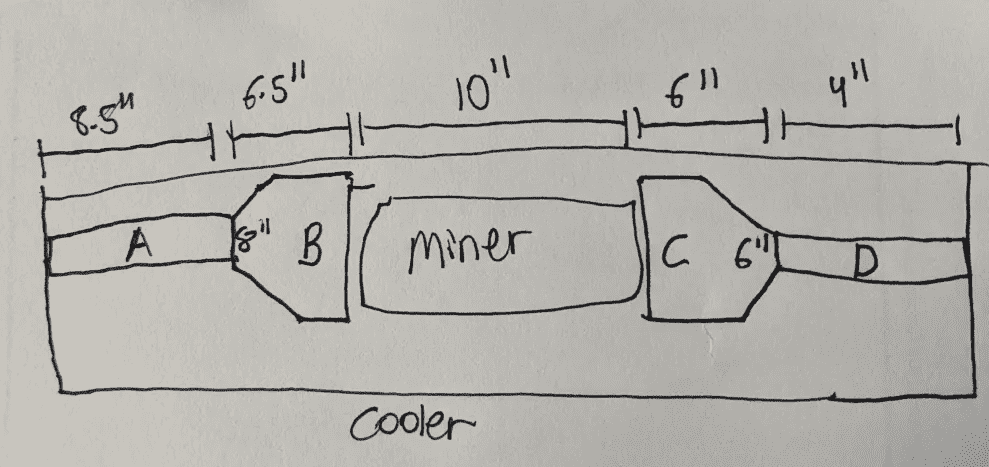 8.5" 6.5" 10" 6" 4"
A 8" B miner C 6" D
Cooler